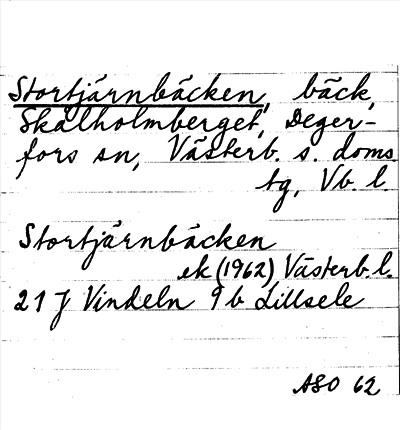 Stortjärnbäcken, bäck,
Skålholmberget, Deger-
fors sn, Västerb. s. doms
tg, Vb. l.
Stortjärnbäcken
ek (1962) Västerb. l.
21 J Vindeln 9 b Lillsele
ASO 62